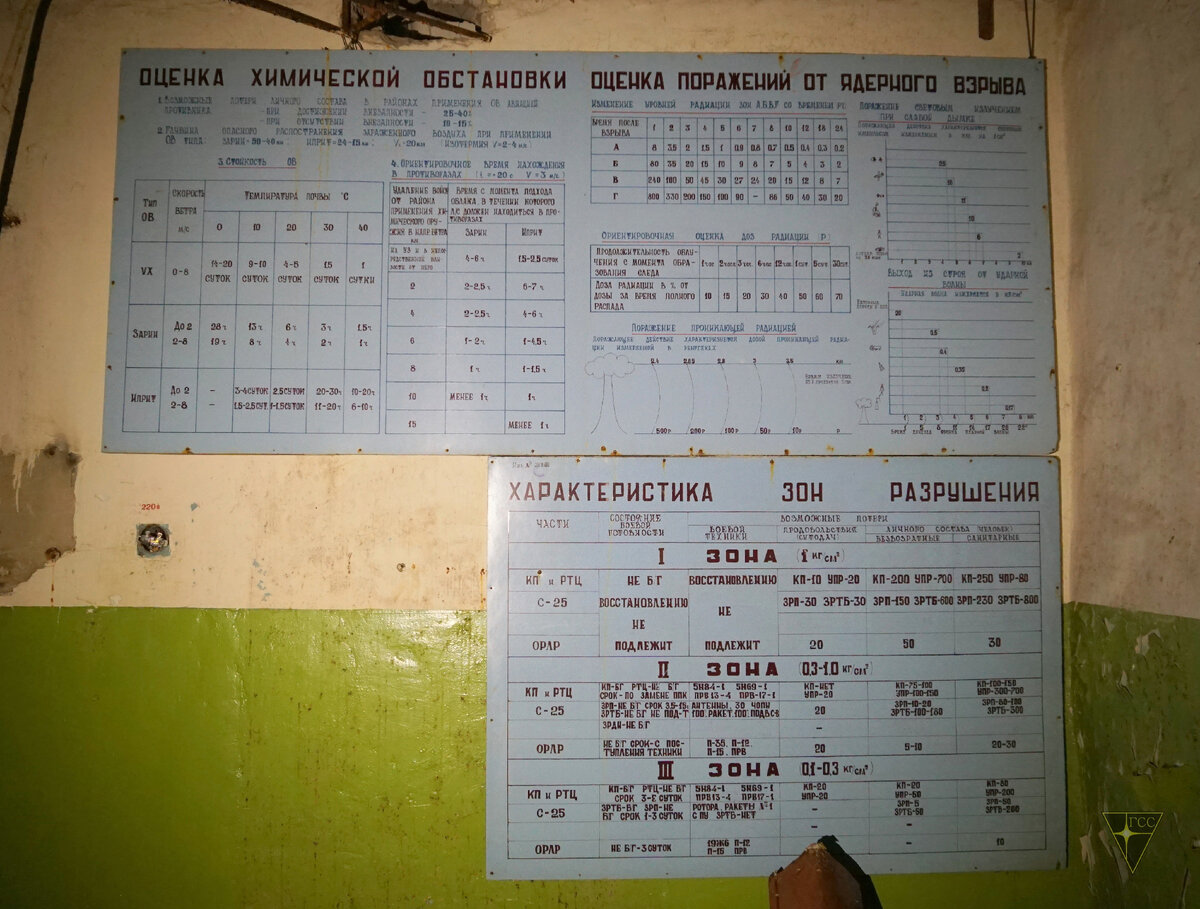 ОЦЕНКА ХИМИЧЕСКОЙ ОБСТАНОВКИ
1. ВОЗМОЖНЫЕ ПОТЕРИ ЛИЧНОГО СОСТАВА В РАЙОНАХ ПРИМЕНЕНИЯ ОВ АВИАЦИИ
ПРОТИВНИКА - ПРИ ДОСТИЖЕНИИ ВНЕЗАПНОСТИ - 25-40%
- ПРИ ОТСУТСТВИИ ВНЕЗАПНОСТИ - 10-15%
2. ГЛУБИНА ОПАСНОГО РАСПОСТРАНЕНИЯ ЗАРАЖЕННОГО ВОЗДУХА ПРИ ПРИМЕНЕНИИ
ОВ ТИПА ЗАРИН-50-40 ИПРИТ-24-15 (ИЗОТЕРМИЯ V=2-4 м/с)
3. СТОЙКОСТЬ ОВ
ТИП ОВ СКОРОСТЬ ВЕТРА М/С ТЕМПИРАТУРА ПОЧВЫ °С
0 10 20 30 40
VX 0-8 14-20 СУТОК 9-10 СУТОК 4-5 СУТОК 1,5 СУТОК 1 СУТКИ
ЗАРИН ДО 2 28ч 13ч 6ч 3ч 1.5ч
2-8 19ч 8ч 4ч 2ч 1ч
ИПРИТ ДО 2 - 3-4СУТОК 2.5СУТОК 20-30ч 10-20ч
2-8 - 1.5-2.5СУТ. 1-1.5СУТОК 11-20ч 6-10ч
4. ОРИЕНТИРОВОЧНОЕ ВРЕМЯ НАХОЖДЕНИЯ
В ПРОТИВОГАЗАХ (t=20с V=3 м/с)
УДАЛЕНИЕ ВОЙСК ОТ РАЙОНА ПРИМЕНЕНИЯ ХИМИЧЕСКОГО ОРУЖИЯ В НАПР ВЕТРА КМ
ВРЕМЯ С МОМЕНТА ПОДХОДА ОБЛАКА, В ТЕЧЕНИИ КОТОРОГО Л/С ДОЛЖЕН НАХОДИТЬСЯ В ПРОТИВОГАЗАХ
ЗАРИН ИПРИТ
4-6ч 1.5-2.5 СУТОК
2 2-2,5ч 6-7ч
4 2-2.5ч 4-6ч
6 1-2ч 1-4,5ч
8 1ч 1-1.5ч
10 МЕНЕЕ 1ч 1ч
15 МЕНЕЕ 1ч
ОЦЕНКА ПОРАЖЕНИЙ ОТ ЯДЕРНОГО ВЗРЫВА
ИЗМЕНЕНИЕ УРОВНЕЙ РАДИАЦИИ ЗОН А,Б,В,Г СО ВРЕМЕНЕМ
ВРЕМЯ ПОСЛЕ ВЗРЫВА 1 2 3 4 5 6 7 8 10 12 18 24
А 8 3.5 2 1.5 1 0.9 0.8 0.7 0.5 0.4 0.3 0.2
Б 80 35 20 15 10 9 8 7 5 4 3 2
В 240 100 50 45 30 27 24 20 15 12 8 7
Г 800 330 200 150 100 90 - 86 50 40 30 20
ОРИЕНТИРОВОЧНАЯ ОЦЕНКА ДОЗ РАДИАЦИИ
ПРОДОЛЖИТЕЛЬНОСТЬ ОБЛУЧЕНИЯ С МОМЕНТА ОБРАЗОВАНИЯ СЛЕДА
ДОЗА РАДИАЦИИ В % ОТ ДОЗЫ ЗА ВРЕМЯ ПОЛНОГО РАСПАДА 10 15 20 30 40 50 60 70
ПОРАЖЕНИЕ ПРОНИКАЮЩЕЙ РАДИАЦИЕЙ
ПОРАЖАЮЩЕЕ ДЕЙСТВИЕ ХАРАКТЕРИЗУЕТСЯ ДОЗОЙ ПРОНИКАЮЩЕЙ РАДИАЦИИ ИЗМЕРЕННОЙ В РЕНТГЕНАХ
500р 200р 100р 50р 10р р
ПОРАЖЕНИЕ СВЕТОВЫМ ИЗЛУЧЕНИЕМ
ПРИ СЛАБОЙ ДЫМКЕ
ВЫХОД ИЗ СТРОЯ ОТ УДАРНОЙ
ВОЛНЫ
УДАРНАЯ ВОЛНА ИЗМЕРЯЕТСЯ В КГ/СМ²
220в
ХАРАКТЕРИСТИКА ЗОН РАЗРУШЕНИЯ
ЧАСТИ СОСТОЯНИЕ БОЕВОЙ ГОТОВНОСТИ ВОЗМОЖНЫЕ ПОТЕРИ
БОЕВОЙ ТЕХНИКИ ПРОДОВОЛЬСТВИЯ (СУТОДАЧ) ЛИЧНОГО СОСТАВА (ЧЕЛОВЕК)
БЕЗВОЗВРАТНЫЕ САНИТАРНЫЕ
I ЗОНА (1 КГ/СМ²)
КП и РТЦ НЕ БГ ВОССТАНОВЛЕНИЮ КП-10 УПР-20 КП-200 УПР-700 КП-250 УПР-80
С-25 ВОССТАНОВЛЕНИЮ НЕ НЕ ЗРП-30 ЗРТБ-30 ЗРП-150 ЗРТБ-600 ЗРП-230 ЗРТБ-800
ОРЛР ПОДЛЕЖИТ ПОДЛЕЖИТ 20 50 30
II ЗОНА (0,3-1.0 КГ/СМ²)
КП и РТЦ КП-БГ РТЦ-НЕ БГ 5Н84-1 5Н69-1 КП-НЕТ КП-75-100 КП-100-150
СРОК-ПО ЗАМЕНЕ ППК ПРВ13-4 ПРВ-17-1 УПР-20 УПР-100-150 УПР-300-700
С-25 ЗРП-НЕ БГ СРОК 3,5-15; АНТЕННЫ, 30 ЧОПИ 20 ЗРП-10-20 ЗРП-80-100
ЗРТБ-НЕ БГ НЕ ПОД-Т 100 РАКЕТ,100 ПОДВ-В ЗРТБ-100-180 ЗРТБ-300
ЗРДН-НЕ БГ -
ОРЛР НЕ БГ СРОК-С ПОСТУПЛЕНИЯ ТЕХНИКИ П-35, П-12, П-15, ПРВ 20 5-10 20-30
III ЗОНА (0,1-0,3 КГ/СМ²)
КП и РТЦ КП-БГ РТЦ-НЕ БГ 5Н84-1 5Н69-1 КП-20 КП-20 КП-80
СРОК 3-Е СУТОК ПРВ13-4 ПРВ17-1 УПР-20 УПР-50 УПР-200
С-25 ЗРТБ-БГ ЗРП-НЕ РОТОРА, РАКЕТЫ №1 - ЗРП-5 ЗРП-50
БГ СРОК 1-3 СУТОК С ПУ ЗРТБ-НЕТ ЗРТБ-50 ЗРТБ-200
ОРЛР НЕ БГ-3 СУТОК 19Ж6 П-12 П-15 ПРВ - - 10
ГСС